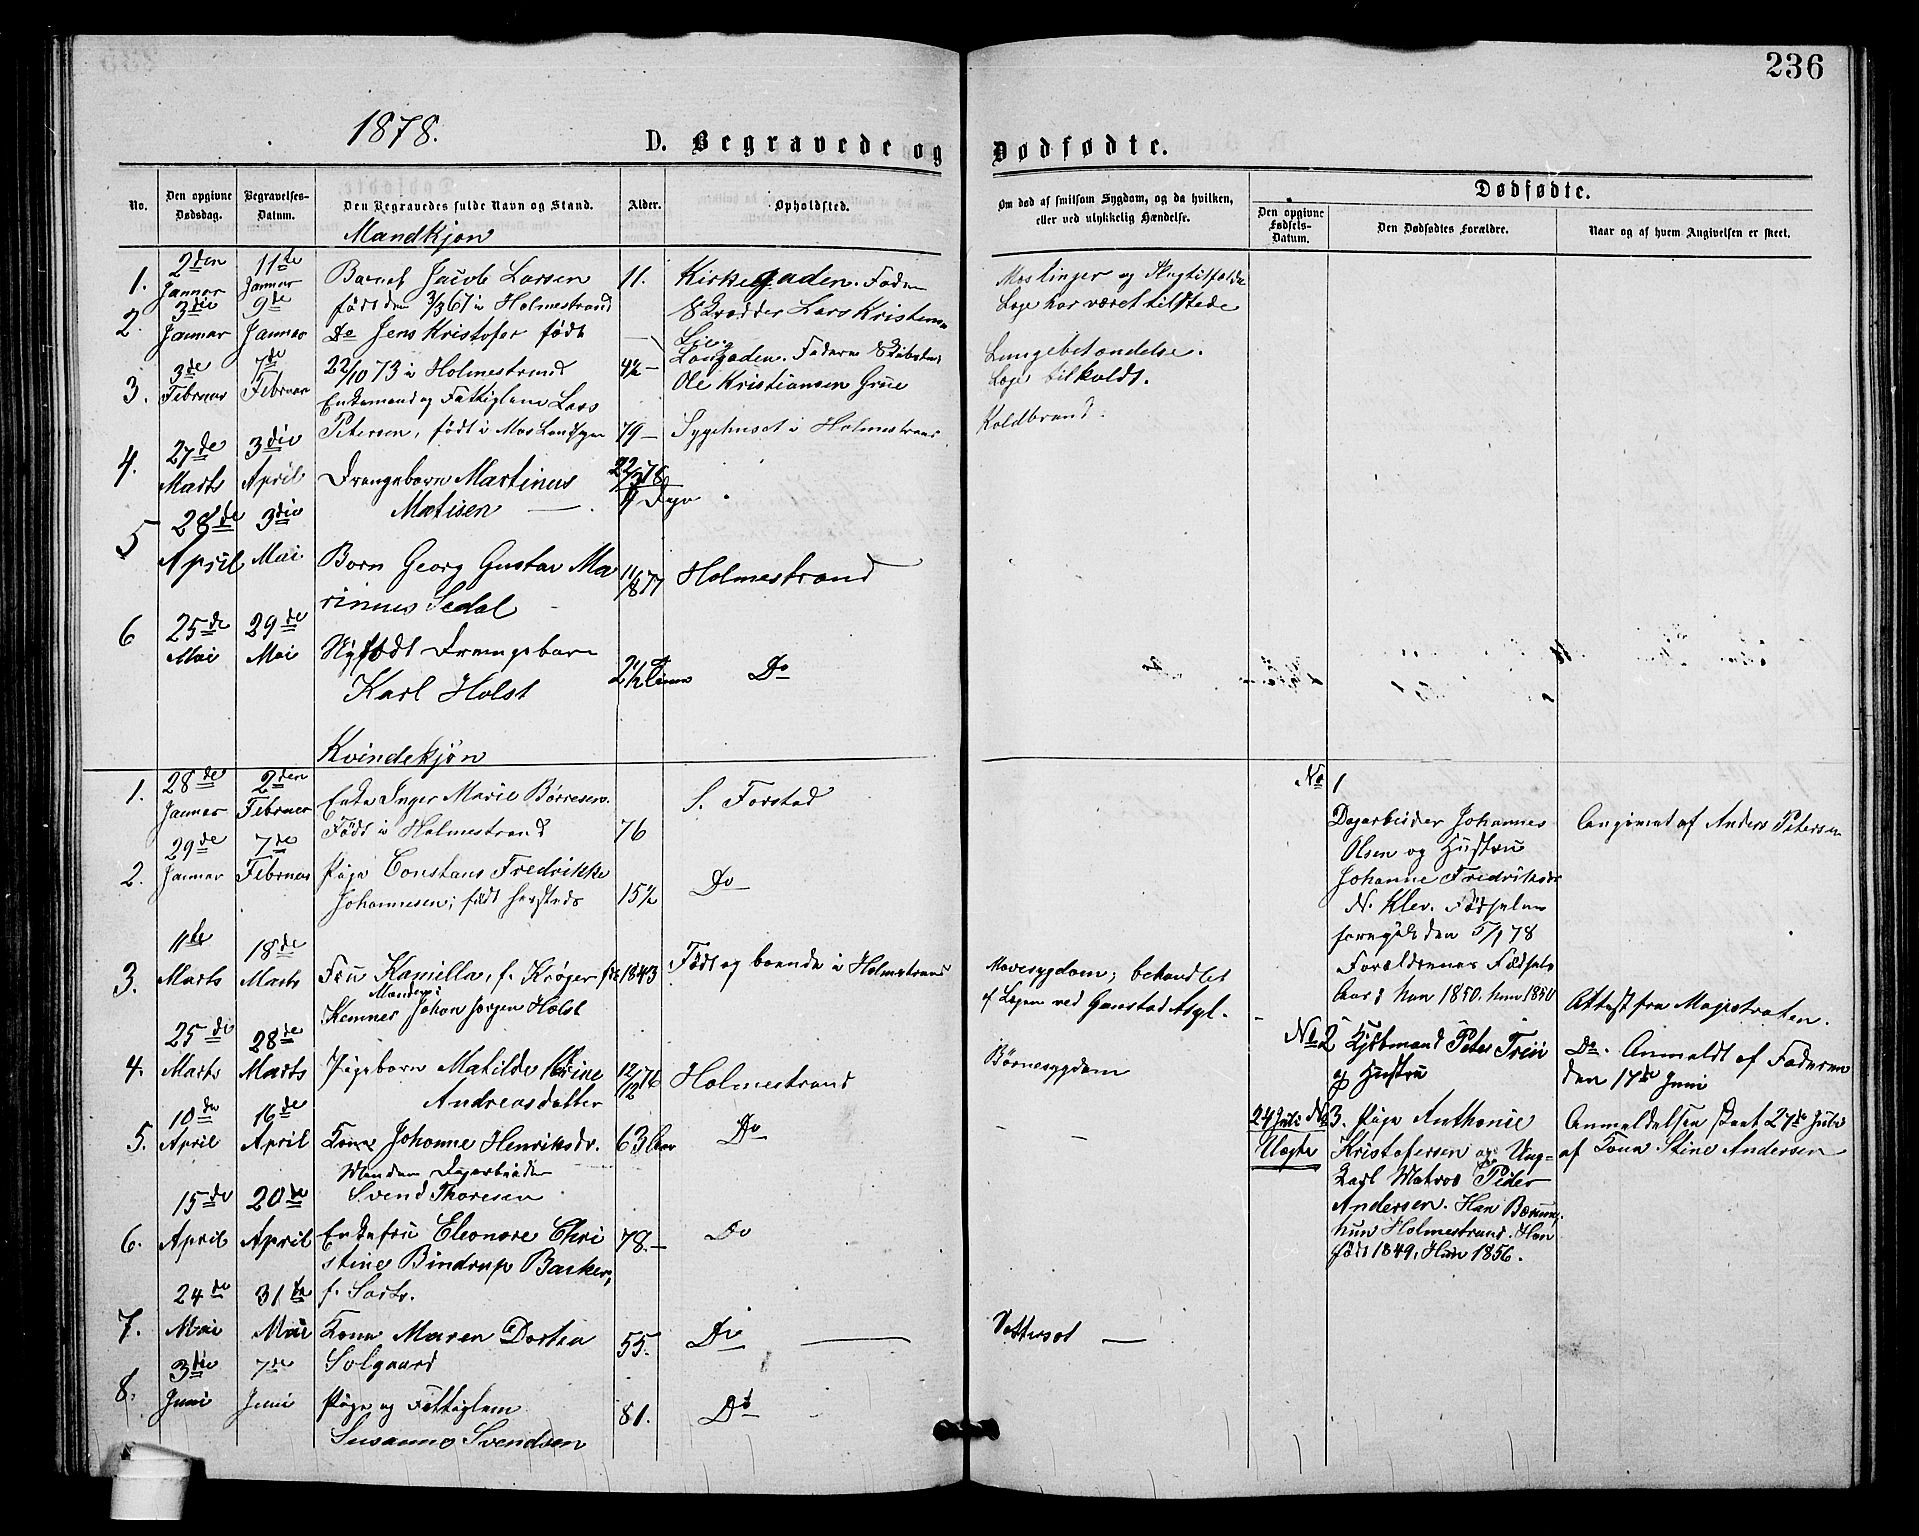 236
1878.
D. Begravede og Dødfødte.
No.
Den opgivne Dødsdag.
Begravelses-Datum.
Den Begravedes fulde Navn og Stand.
Alder.
Opholdsted.
Om død af smitsom Sygdom, og da hvilken, eller ved ulykkelig Hændelse.
Dødfødte.
Den opgivne Fødsels-Datum.
Den Dødfødtes Forældre.
Naar og af hvem Angivelsen er skeet.
Mandkjøn
1. 2den Januar 11te Januar Barnet Jacob Larsen 11. Kirkegaden. Faderen
født den 3/3 67 i Holmestrand Skrædder Lars Kristensen
Læge har været tilstede
2. 3die Januar 9de Januar Do Jens Kristofer født
22/10 73 i Holmestrand 4½ — Langgaden. Faderen
Ole Kristiansen Grue
Lungebetændelse.
Læge tilkaldt.
3. 3de Februar 7de Februar Enkemand og Fattiglem Lars
Petersen, født i Mos Landsogn 79 — Sygehuset i Holmestrand
Koldbrand.
4. 27de Marts 3die April Drengebarn Martinus
Matisen — 22/3 78
Dage
5 28de April 3die Mai Barn Georg Gustav Ma
rinus Sedal 11/8 77 Holmestrand
6 25de Mai 29de Mai Nyfødt Drengebarn
Karl Holst 2½ Do
Kvindekjøn
1. 28de Januar 2den Februar Enke Inger Marie Børresen.
Født i Holmestrand 76 S. Forstad
2. 29de Januar 7de Februar Pige Constans Fredrikke
Johannesen; født hersteds 15½ Do
3. 11te Marts 18de Marts Fru Kamilla, f. Krøger 1843 Født og boende i Holmestrand
Manden:
Kemner Johan Jørgen Holst
Mavesygdom; behandlet
af Lægen ved Gaustad Asyl.
4. 25de Marts 28de Marts Pigebarn Matilde
Andreasdatter 12/12 76 Holmestrand
Børnesygdom
5. 10de April 16de April Kone Johanne Henriksdr. 63 Aar Do
Manden Dagarbeider
Svend Thoresen
6. 15de April 20de April Enkefru Eleonore Chri
stine Bindrup Barker, 78. — Do
f. Sarts.
7. 24de Mai 31te Mai Kone Maren Dortea
Solgaard 55. Do —
Vattersot —
8. 3die Juni 7de Juni Pige og Fattiglem
Susanne Svendsen 81. Do
No 1
Dagarbeider Johannes
Olsen og Hustru
Johanne Fredriksdr
N. Klev. Fødselen
foregik den 5/1 78
Forældrenes Fødsels
Aar: han 1850. hun 1850
Angivet af Anders Petersen
Attest fra Magistraten.
No 2 Kjøbmand Peter Trein
og Hustru
Do. Anmeldt af Faderen
den 17de Juni
24 Juli No 3. Pige Anthonie
Uægte Kristofersen og Ung-
karl Matros Peder
Andersen. Han Bærum,
hun Holmestrand. Han
født 1849, Hun 1856.
Anmeldelsen skeet 27de Juli
af Kone Stine Andersen